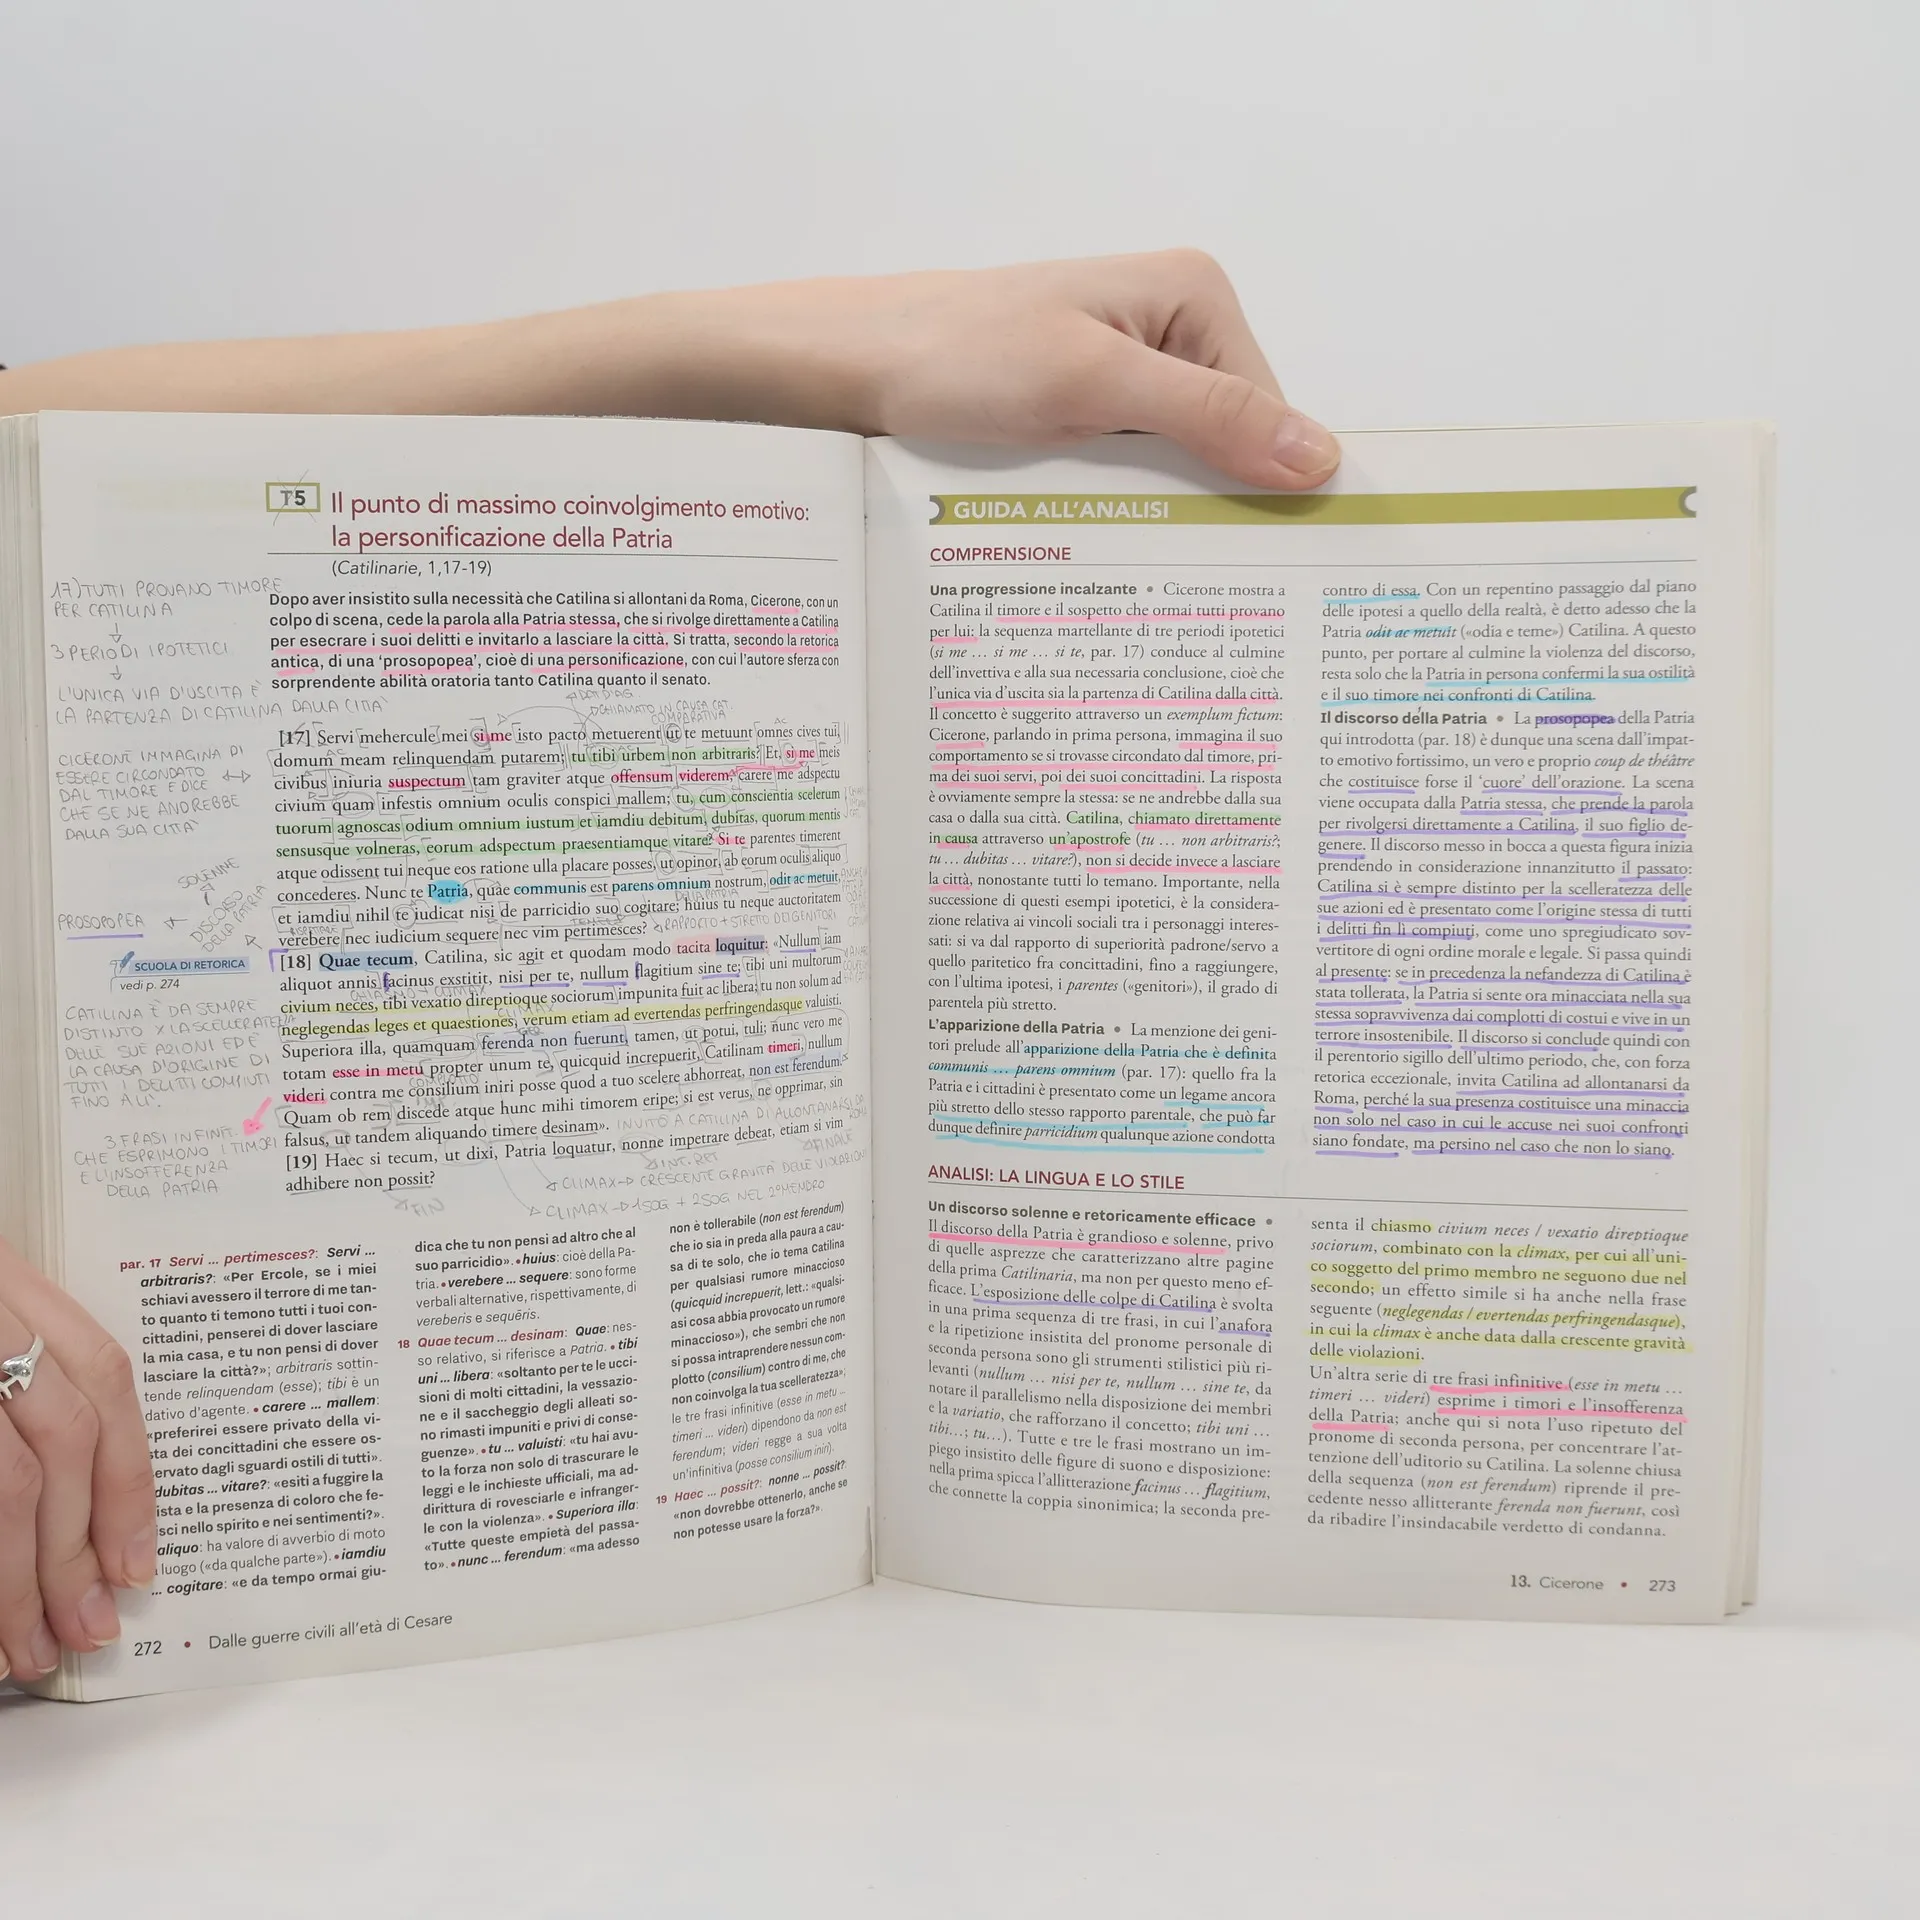 T5 Il punto di massimo coinvolgimento emotivo:
la personificazione della Patria
(Catilinarie, 1,17-19)
Dopo aver insistito sulla necessità che Catilina si allontani da Roma, Cicerone, con un
colpo di scena, cede la parola alla Patria stessa, che si rivolge direttamente a Catilina
per esecrare i suoi delitti e invitarlo a lasciare la città. Si tratta, secondo la retorica
antica, di una ‘prosopopea’, cioè di una personificazione, con cui l’autore sferza con
sorprendente abilità oratoria tanto Catilina quanto il senato.
17) TUTTI PROVANO TIMORE
PER CATILINA
3 PERIODI IPOTETICI
L'UNICA VIA D'USCITA È
LA PARTENZA DI CATILINA DALLA CITTA'
CICERONE IMMAGINA DI
ESSERE CIRCONDATO
DAL TIMORE E DICE
CHE SE NE ANDREBBE
DALLA SUA CITTA'
SOLENNE
DISCORSO
DELLA PATRIA
PROSOPOPEA
SCUOLA DI RETORICA
vedi p. 274
CATILINA È DA SEMPRE
DISTINTO X LA SCELLERATEZZA
DELLE SUE AZIONI ED È
LA CAUSA D'ORIGINE DI
TUTTI I DELITTI COMPIUTI
FINO A LI'.
3 FRASI INFINIT.
CHE ESPRIMONO I TIMORI
E L'INSOFFERENZA
DELLA PATRIA
DAT D'AG.
CHIAMATO IN CAUSA CAT.
COMPARATIVA
[17] Servi mehercule mei si me isto pacto metuerent ut te metuunt omnes cives tui,
domum meam relinquendam putarem; tu tibi urbem non arbitraris? Et, si me meis
civibus iniuria suspectum tam graviter atque offensum viderem, carere me adspectu
civium quam infestis omnium oculis conspici mallem; tu, cum conscientia scelerum
tuorum agnoscas odium omnium iustum et iamdiu debitum, dubitas, quorum mentis
sensusque volneras, eorum adspectum praesentiamque vitare? Si te parentes timerent
atque odissent tui neque eos ratione ulla placare posses, ut opinor, ab eorum oculis aliquo
concederes. Nunc te Patria, quae communis est parens omnium nostrum, odit ac metuit,
et iamdiu nihil te iudicat nisi de parricidio suo cogitare; huius tu neque auctoritatem
verebere nec iudicium sequere nec vim pertimesces?
RAPPORTO + STRETTO DI GENITORI
[18] Quae tecum, Catilina, sic agit et quodam modo tacita loquitur: «Nullum iam
aliquot annis facinus exstitit, nisi per te, nullum flagitium sine te; tibi uni multorum
CHIASMO + CLIMAX
civium neces, tibi vexatio direptioque sociorum impunita fuit ac libera; tu non solum ad
CLIMAX
neglegendas leges et quaestiones, verum etiam ad evertendas perfringendasque valuisti.
Superiora illa, quamquam ferenda non fuerunt, tamen, ut potui, tuli; nunc vero me
totam esse in metu propter unum te, quicquid increpuerit, Catilinam timeri, nullum
COMPLOTTO
videri contra me consilium iniri posse quod a tuo scelere abhorreat, non est ferendum.
Quam ob rem discede atque hunc mihi timorem eripe; si est verus, ne opprimar, sin
falsus, ut tandem aliquando timere desinam». INVITO A CATILINA DI ALLONTANARSI DA ROMA
[19] Haec si tecum, ut dixi, Patria loquatur, nonne impetrare debeat, etiam si vim
adhibere non possit?
INT. RET
FINALE
CLIMAX → CRESCENTE GRAVITA' DELLE VIOLAZIONI
CLIMAX → 1SOG + 2SOG NEL 2° MEMBRO
FIN
par. 17 Servi ... pertimesces?: Servi ...
arbitraris?: «Per Ercole, se i miei
schiavi avessero il terrore di me tan-
to quanto ti temono tutti i tuoi con-
cittadini, penserei di dover lasciare
la mia casa, e tu non pensi di dover
lasciare la città?»; arbitraris sottin-
tende relinquendam (esse); tibi è un
dativo d’agente. • carere ... mallem:
«preferirei essere privato della vi-
sta dei concittadini che essere os-
ervato dagli sguardi ostili di tutti».
dubitas ... vitare?: «esiti a fuggire la
ista e la presenza di coloro che fe-
isci nello spirito e nei sentimenti?».
aliquo: ha valore di avverbio di moto
luogo («da qualche parte»). • iamdiu
... cogitare: «e da tempo ormai giu-
dica che tu non pensi ad altro che al
suo parricidio». • huius: cioè della Pa-
tria. • verebere ... sequere: sono forme
verbali alternative, rispettivamente, di
vereberis e sequēris.
18 Quae tecum ... desinam: Quae: nes-
so relativo, si riferisce a Patria. • tibi
uni ... libera: «soltanto per te le ucci-
sioni di molti cittadini, la vessazio-
ne e il saccheggio degli alleati so-
no rimasti impuniti e privi di conse-
guenze». • tu ... valuisti: «tu hai avu-
to la forza non solo di trascurare le
leggi e le inchieste ufficiali, ma ad-
dirittura di rovesciarle e infranger-
le con la violenza». • Superiora illa:
«Tutte queste empietà del passa-
to». • nunc ... ferendum: «ma adesso
non è tollerabile (non est ferendum)
che io sia in preda alla paura a cau-
sa di te solo, che io tema Catilina
per qualsiasi rumore minaccioso
(quicquid increpuerit, lett.: «qualsi-
asi cosa abbia provocato un rumore
minaccioso»), che sembri che non
si possa intraprendere nessun com-
plotto (consilium) contro di me, che
non coinvolga la tua scelleratezza»;
le tre frasi infinitive (esse in metu ...
timeri ... videri) dipendono da non est
ferendum; videri regge a sua volta
un’infinitiva (posse consilium iniri).
19 Haec ... possit?: nonne ... possit?
«non dovrebbe ottenerlo, anche se
non potesse usare la forza?».
272 • Dalle guerre civili all’età di Cesare
GUIDA ALL’ANALISI
COMPRENSIONE
Una progressione incalzante • Cicerone mostra a
Catilina il timore e il sospetto che ormai tutti provano
per lui: la sequenza martellante di tre periodi ipotetici
(si me ... si me ... si te, par. 17) conduce al culmine
dell’invettiva e alla sua necessaria conclusione, cioè che
l’unica via d’uscita sia la partenza di Catilina dalla città.
Il concetto è suggerito attraverso un exemplum fictum:
Cicerone, parlando in prima persona, immagina il suo
comportamento se si trovasse circondato dal timore, pri-
ma dei suoi servi, poi dei suoi concittadini. La risposta
è ovviamente sempre la stessa: se ne andrebbe dalla sua
casa o dalla sua città. Catilina, chiamato direttamente
in causa attraverso un’apostrofe (tu ... non arbitraris?;
tu ... dubitas ... vitare?), non si decide invece a lasciare
la città, nonostante tutti lo temano. Importante, nella
successione di questi esempi ipotetici, è la considera-
zione relativa ai vincoli sociali tra i personaggi interes-
sati: si va dal rapporto di superiorità padrone/servo a
quello paritetico fra concittadini, fino a raggiungere,
con l’ultima ipotesi, i parentes («genitori»), il grado di
parentela più stretto.
L’apparizione della Patria • La menzione dei geni-
tori prelude all’apparizione della Patria che è definita
communis ... parens omnium (par. 17): quello fra la
Patria e i cittadini è presentato come un legame ancora
più stretto dello stesso rapporto parentale, che può far
dunque definire parricidium qualunque azione condotta
contro di essa. Con un repentino passaggio dal piano
delle ipotesi a quello della realtà, è detto adesso che la
Patria odit ac metuit («odia e teme») Catilina. A questo
punto, per portare al culmine la violenza del discorso,
resta solo che la Patria in persona confermi la sua ostilità
e il suo timore nei confronti di Catilina.
Il discorso della Patria • La prosopopea della Patria
qui introdotta (par. 18) è dunque una scena dall’impat-
to emotivo fortissimo, un vero e proprio coup de théâtre
che costituisce forse il ‘cuore’ dell’orazione. La scena
viene occupata dalla Patria stessa, che prende la parola
per rivolgersi direttamente a Catilina, il suo figlio de-
genere. Il discorso messo in bocca a questa figura inizia
prendendo in considerazione innanzitutto il passato:
Catilina si è sempre distinto per la scelleratezza delle
sue azioni ed è presentato come l’origine stessa di tutti
i delitti fin lì compiuti, come uno spregiudicato sov-
vertitore di ogni ordine morale e legale. Si passa quindi
al presente: se in precedenza la nefandezza di Catilina è
stata tollerata, la Patria si sente ora minacciata nella sua
stessa sopravvivenza dai complotti di costui e vive in un
terrore insostenibile. Il discorso si conclude quindi con
il perentorio sigillo dell’ultimo periodo, che, con forza
retorica eccezionale, invita Catilina ad allontanarsi da
Roma, perché la sua presenza costituisce una minaccia
non solo nel caso in cui le accuse nei suoi confronti
siano fondate, ma persino nel caso che non lo siano.
ANALISI: LA LINGUA E LO STILE
Un discorso solenne e retoricamente efficace •
Il discorso della Patria è grandioso e solenne, privo
di quelle asprezze che caratterizzano altre pagine
della prima Catilinaria, ma non per questo meno ef-
ficace. L’esposizione delle colpe di Catilina è svolta
in una prima sequenza di tre frasi, in cui l’anafora
e la ripetizione insistita del pronome personale di
seconda persona sono gli strumenti stilistici più ri-
levanti (nullum ... nisi per te, nullum ... sine te, da
notare il parallelismo nella disposizione dei membri
e la variatio, che rafforzano il concetto; tibi uni ...
tibi...; tu...). Tutte e tre le frasi mostrano un im-
piego insistito delle figure di suono e disposizione:
nella prima spicca l’allitterazione facinus ... flagitium,
che connette la coppia sinonimica; la seconda pre-
senta il chiasmo civium neces / vexatio direptioque
sociorum, combinato con la climax, per cui all’uni-
co soggetto del primo membro ne seguono due nel
secondo; un effetto simile si ha anche nella frase
seguente (neglegendas / evertendas perfringendasque),
in cui la climax è anche data dalla crescente gravità
delle violazioni.
Un’altra serie di tre frasi infinitive (esse in metu ...
timeri ... videri) esprime i timori e l’insofferenza
della Patria; anche qui si nota l’uso ripetuto del
pronome di seconda persona, per concentrare l’at-
tenzione dell’uditorio su Catilina. La solenne chiusa
della sequenza (non est ferendum) riprende il pre-
cedente nesso allitterante ferenda non fuerunt, così
da ribadire l’insindacabile verdetto di condanna.
13. Cicerone • 273